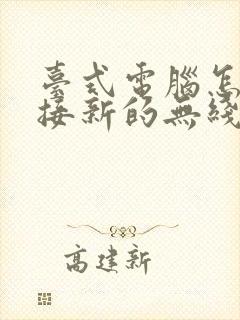 臺式電腦怎
接新的無綫
高建新